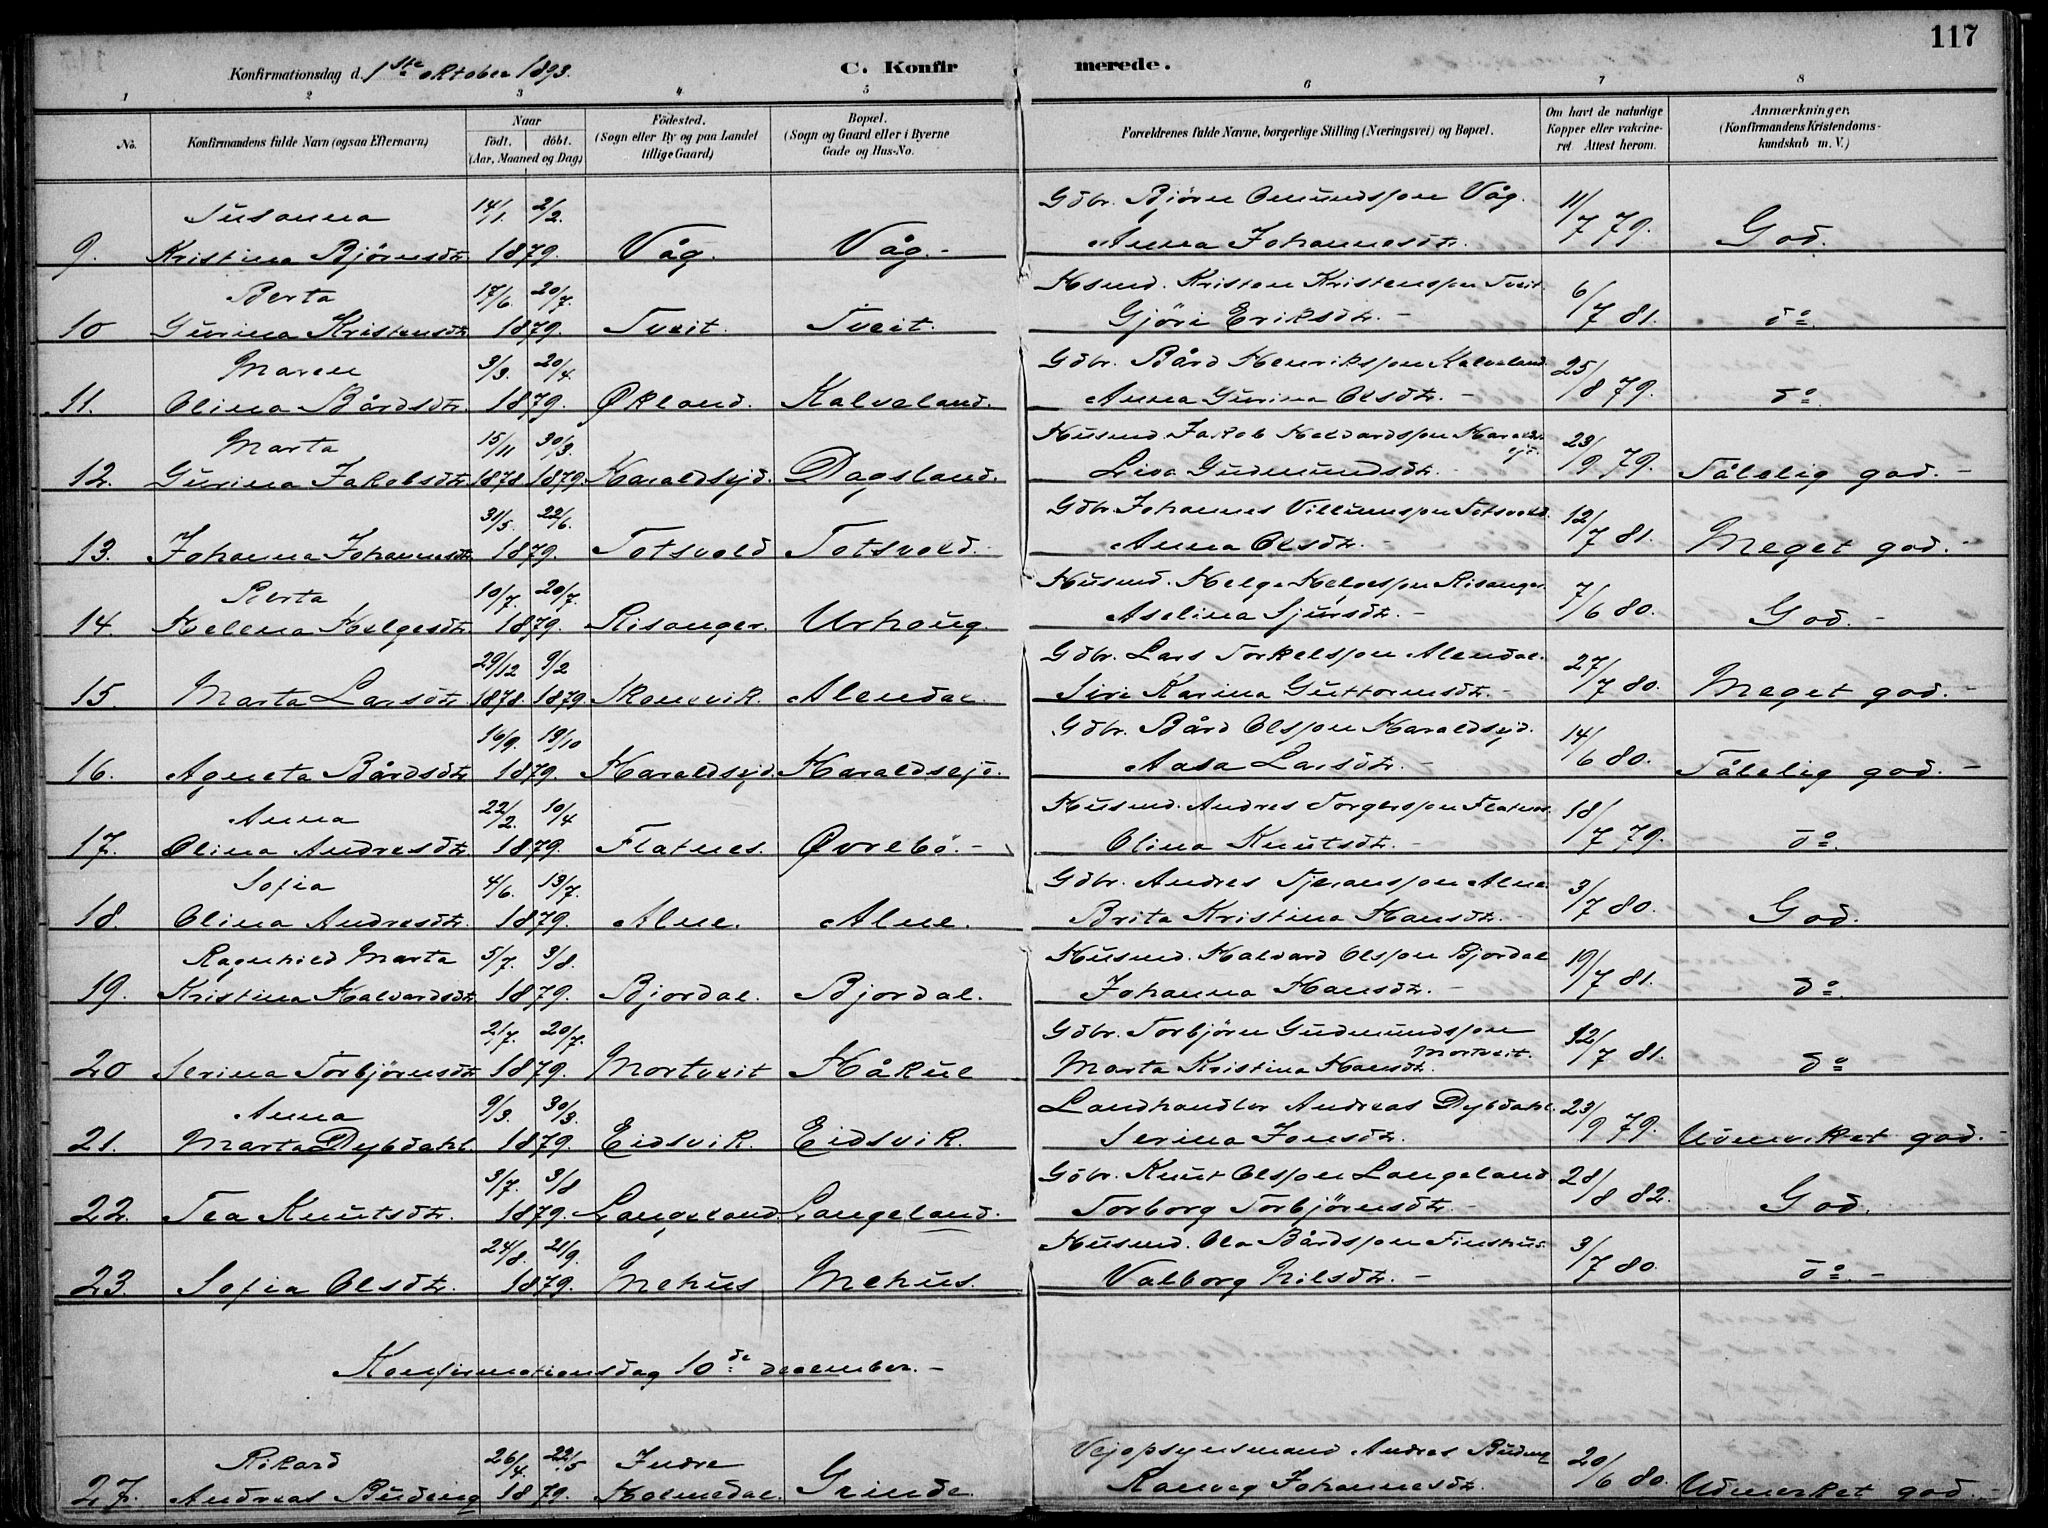 117
Konfirmationsdag d. 1ste oktober 1893. C. Konfirmerede.
1 2 3 4 5 6 7 8
No. Konfirmandens fulde Navn (ogsaa Efternavn) Naar født. døbt. (Aar, Maaned og Dag) Fødested. (Sogn eller By og paa Landet tillige Gaard) Bopæl. (Sogn og Gaard eller i Byerne Gade og Hus-No. Forældrenes fulde Navne, borgerlige Stilling (Næringsvei) og Bopæl. Om havt de naturlige Kopper eller vakcineret Attest herom. Anmærkninger. (Konfirmandens Kristendomskundskab m. V.)
Susanna 14/1. 2/2. Gdbr. Bjørn Omundsson Våg. 11/7 79.
9. Kristina Bjørnsdtr. 1879. Våg. Våg. - Anna Johannesdtr. God.
Berta 17/6. 20/7. Husmd. Kristen Kristensson Tveit. 6/7 81.
10 Gurina Kristensdtr. 1879. Tveit. Tveit. Gjøri Eriksdtr. - do
Maren 3/3. 20/4. Gdbr. Bård Henriksson Kalveland. 25/8 79.
11. Olina Bårdsdtr. 1879. Økland. Kalveland. Anna Gurina Olsdtr. - do
Marta 15/11 30/3. Husmd. Jakob Halvardsson Haraldsejd. 23/9 79.
12. Gurina Jakobsdtr. 1878 1879. Haraldsejd. Dagsland. Lisa Gudmundsdtr. - Tålelig god. -
31/5. 22/6. Gdbr. Johannes Villumsson Totsvold. 12/7 81.
13. Johanna Johannesdtr. 1879. Totsvold Totsvold. Anna Olsdtr. - Meget god. -
Berta 10/7. 20/7. Husmd. Helge Helgesson Risanger. 7/6 80.
14. Helena Helgesdtr. 1879. Risanger. Urhaug. Aselina Sjursdtr. - God. -
29/12 9/2 Gdbr. Lars Torkelsson Alendal. 27/7 80.
15. Marta Larsdtr. 1878. 1879. Skonevik. Alendal. Siri Karina Guttormsdtr. - Meget god. -
16/9. 19/10 Gdbr. Bård Olsson Haraldsejd. 14/6 80.
16. Agneta Bårdsdtr. 1879. Haraldsejd. Haraldsejd. Aasa Larsdtr. - Tålelig god. -
Anna 22/2. 10/4 Husmd. Andres Torgersson Flatnes. 18/7 79.
17. Olina Andresdtr. 1879. Flatnes. Øvrebø. - Olina Knutsdtr. - do.
Sofia 4/6. 13/7. Gdbr. Andres Tjeransson Alne. 3/7 80.
18. Olina Andresdtr. 1879. Alne. Alne. Brita Kristina Hansdtr. - God.
Ragnhild Marta 5/7. 3/8. Husmd. Halvard Olsson Bjordal 19/7 81.
19. Kristina Halvardsdtr. 1879. Bjordal. Bjordal. Johanna Hansdtr. - do
2/7. 20/7. Gdbr. Torbjørn Gudmundsson Mortveit. 12/7 81.
20 Serina Torbjørnsdtr. 1879. Mortveit Håkul Marta Kristina Hansdtr. do
Anna 9/3. 30/3. Landhandler Andreas Dybdahl. 23/9 79.
21. Marta Dybdahl. 1879. Eidsvik. Eidsvik. Serina Jonsdtr. Udmerket god. -
3/7. 3/8 Gdbr. Knut Olsson Langeland 28/8 82.
22. Tea Knutsdtr. 1879. Langeland. Langeland. Torborg Torbjørnsdtr. - God.
24/8. 21/9. Husmd. Ola Bårdsson Finshus. 3/7 80.
23. Sofia Olsdtr. 1879. Mehus Mehus. Valborg Nilsdtr. - do. -
Konfirmationsdag 10de december. -
Rikard 26/4. 22/5 Indre Vejopsynsmand Andres Buding 20/6 80.
27. Andreas Buding 1879. Holmedal. Grinde. Ranveg Johannesdtr. Udmerket god. -